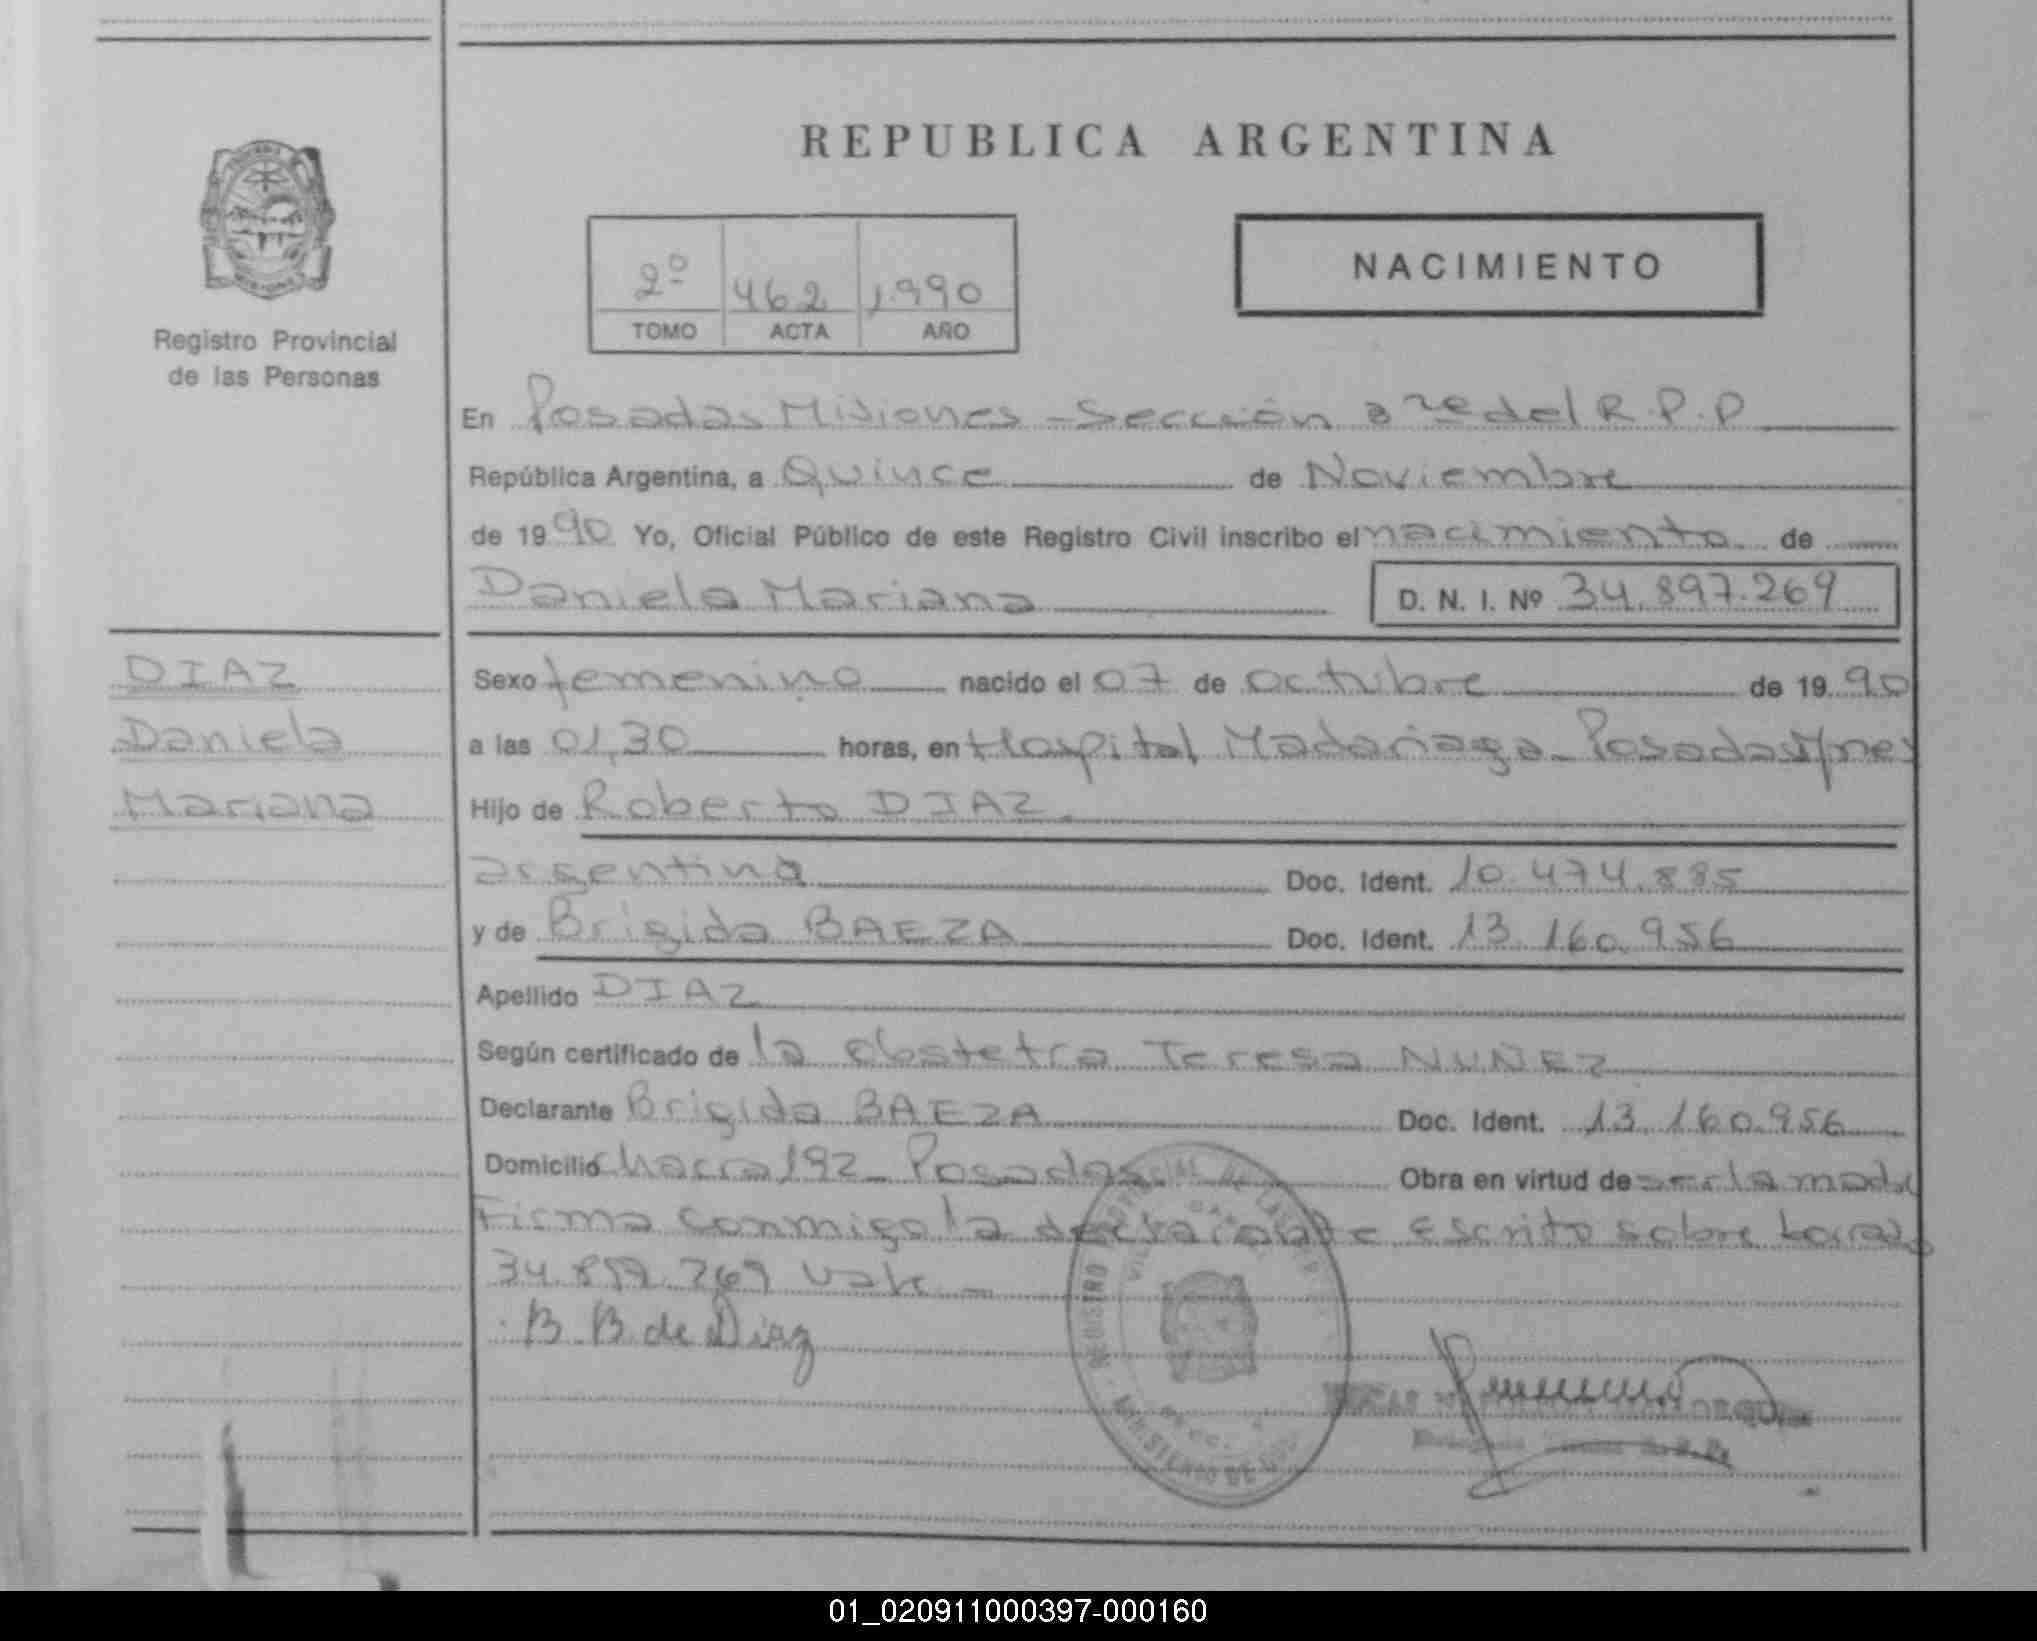 REPUBLICA ARGENTINA
2º 462 1.990
TOMO ACTA AÑO
NACIMIENTO
Registro Provincial
de las Personas
En Posadas Misiones - Sección 3 re del R.P.P
República Argentina, a Quince de Noviembre
de 1990 Yo, Oficial Público de este Registro Civil inscribo el nacimiento de
Daniela Mariana D. N. I. Nº 34.897.269
DIAZ
Daniela
Mariana
Sexo femenino nacido el 07 de octubre de 1990
a las 01,30 horas, en Hospital Madariaga - Posadas Mnes
Hijo de Roberto DIAZ.
argentina Doc. Ident. 10.474.885
y de Brigida BAEZA Doc. Ident. 13.160.956
Apellido DIAZ
Según certificado de la obstetra Teresa NUÑEZ
Declarante Brigida BAEZA Doc. Ident. 13.160.956
Domicilio chacra 192 - Posadas Obra en virtud de ser la madre
Firma conmigo la declarante escrito sobre borrado
34.897.269 vale -
B B. de Diaz
REGISTRO PROVINCIAL DE LAS
MINISTERIO DE
01_020911000397-000160